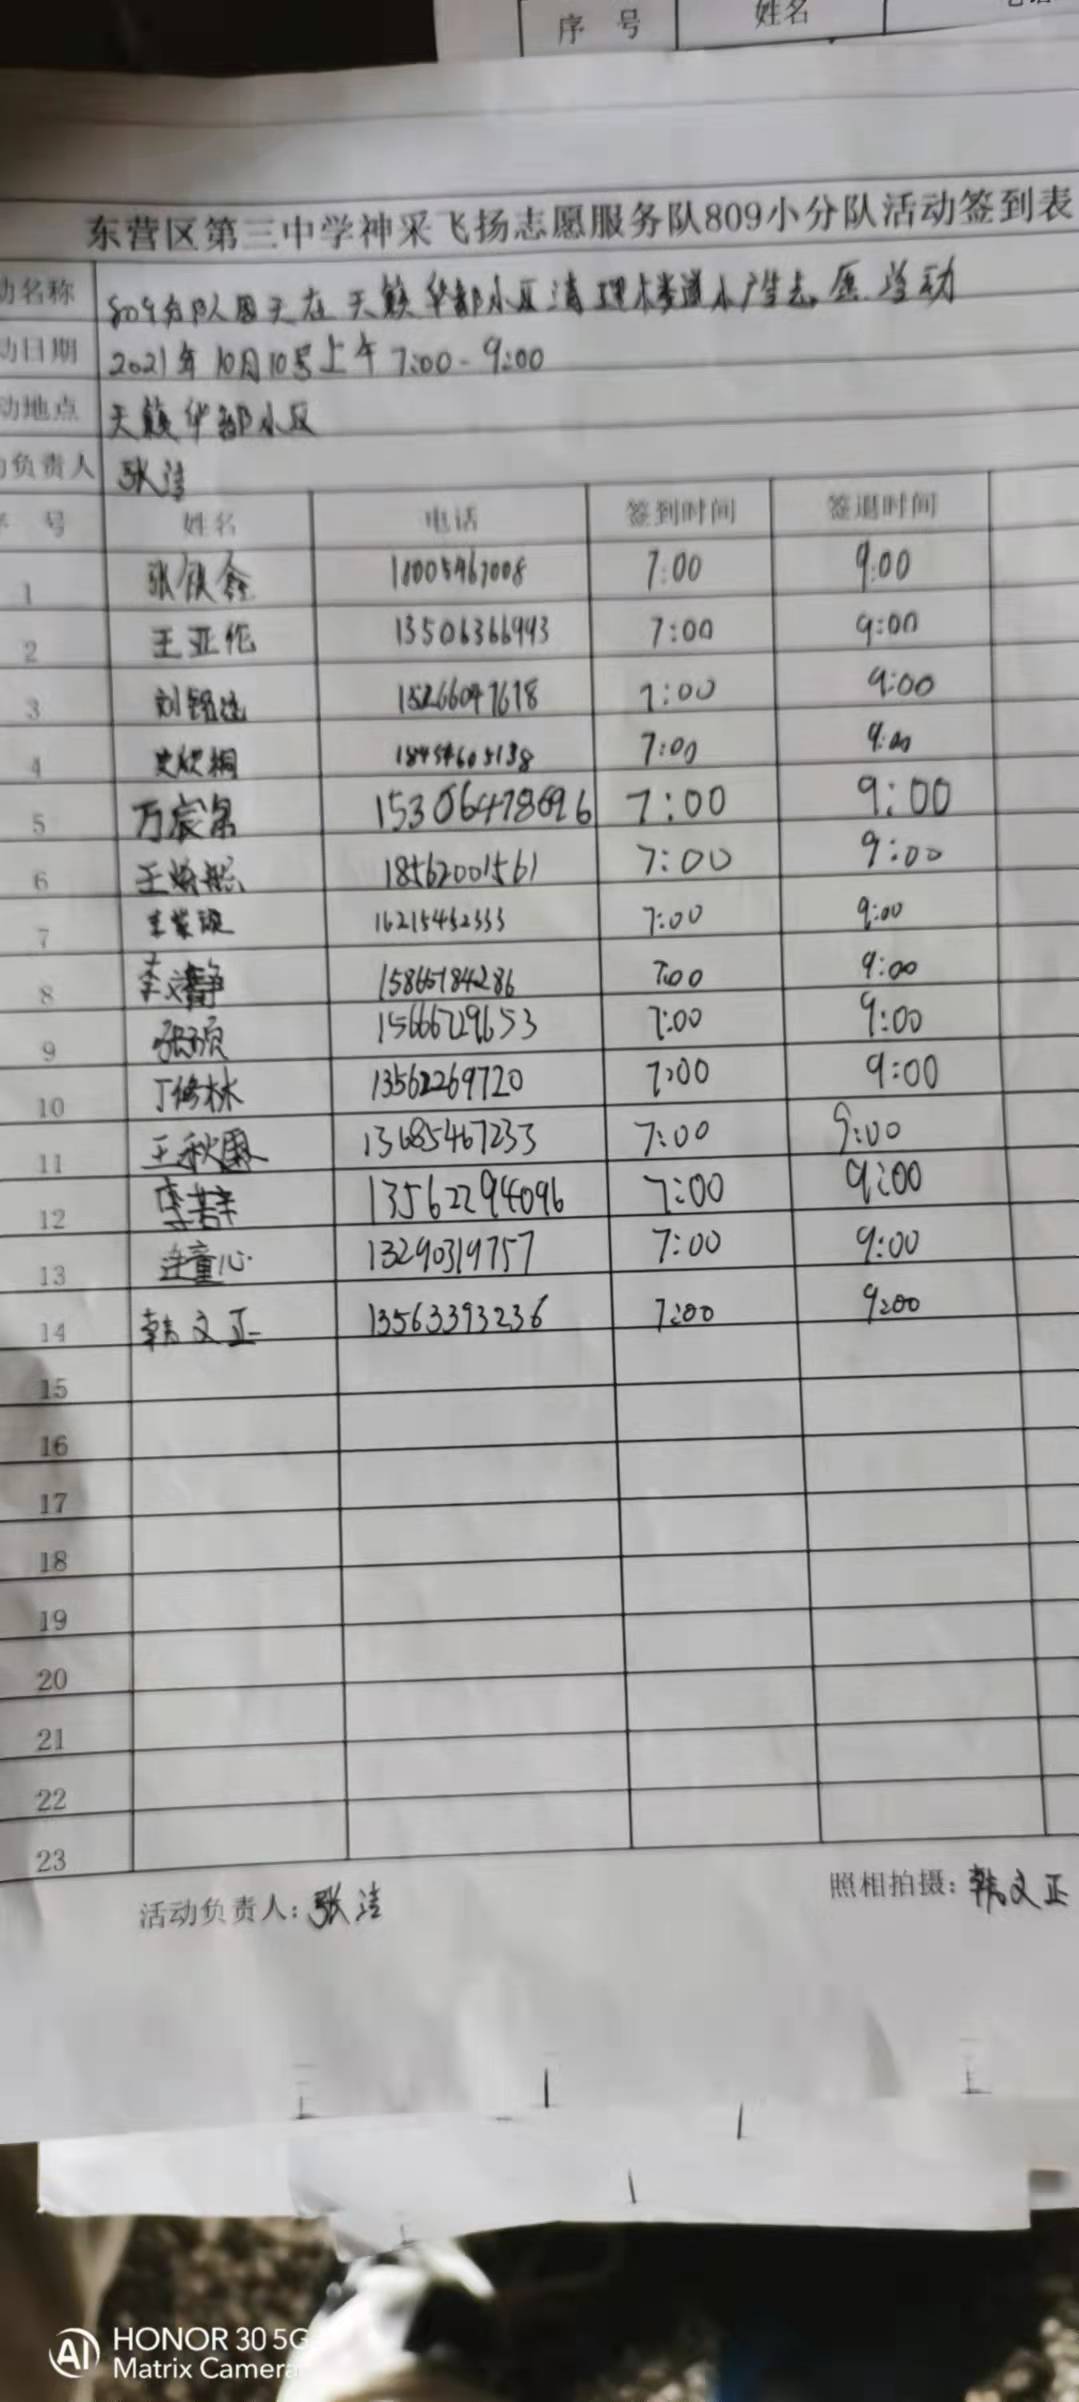 序 号 姓名
东营区第三中学神采飞扬志愿服务队809小分队活动签到表
动名称 809分队 天在天籁华都小区清理楼道小广告志愿 动
动日期 2021年10月10号上午7:00-9:00
动地点 天籁华都小区
负责人 张洁
号 姓名 电话 签到时间 签退时间
1 张 鑫 18005467008 7:00 9:00
2 王亚伦 13506366943 7:00 9:00
3 刘 15266047678 7:00 9:00
4 史欣桐 18454605138 7:00 9:00
5 万宸 15306478696 7:00 9:00
6 王 18562001561 7:00 9:00
7 16215452333 7:00 9:00
8 李文静 15865784286 7:00 9:00
9 张硕 15666729653 7:00 9:00
10 丁修林 13562269720 7:00 9:00
11 王秋 13685467233 7:00 9:00
12 李 13562294096 7:00 9:00
13 童心 13290319757 7:00 9:00
14 韩文正 13563393236 7:00 9:00
15
16
17
18
19
20
21
22
23
活动负责人:张洁 照相拍摄:韩文正
AI HONOR 30 5G
Matrix Camera